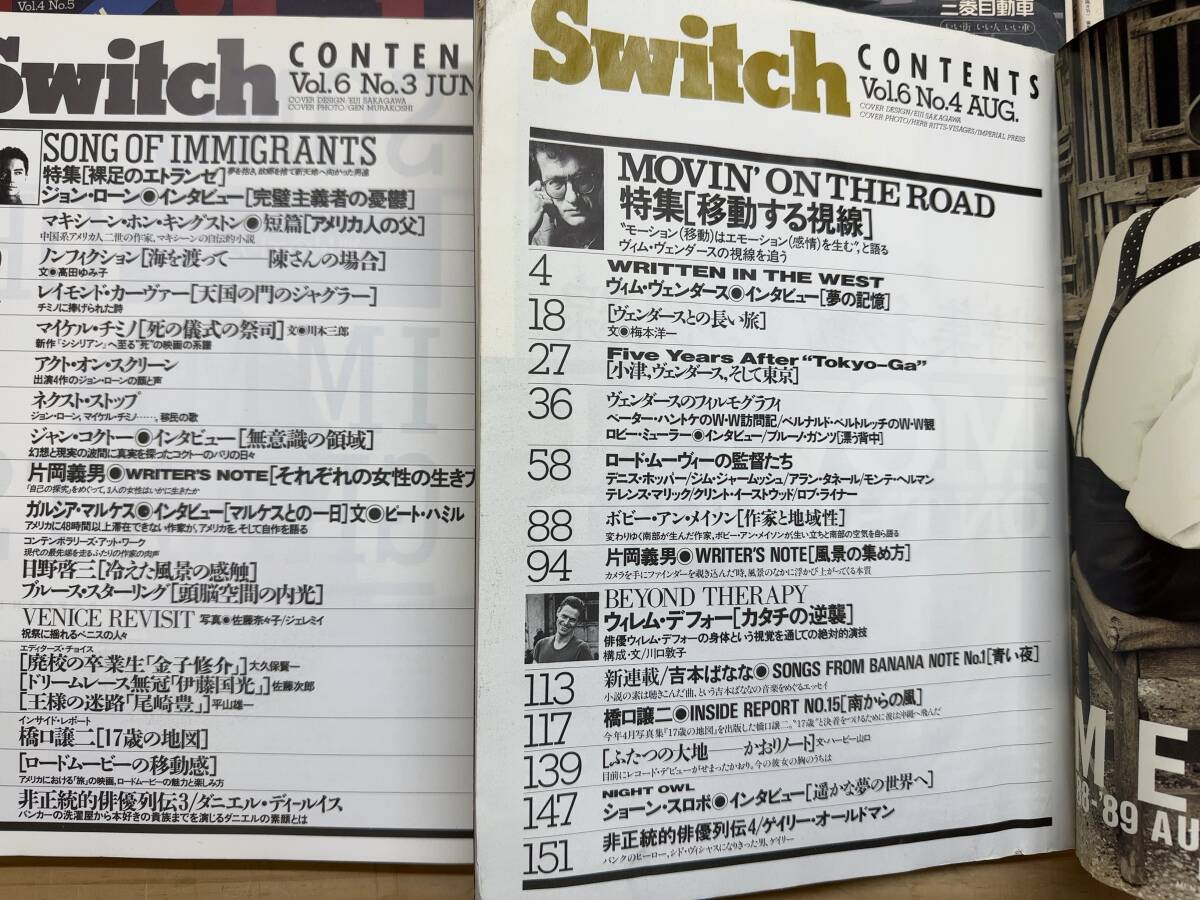 Vol.4 No.5
三菱自動車
いい街 いい人 いい車
Switch
CONTEN
Vol.6 No.3 JUN
COVER DESIGN/EIJI SAKAGAWA
COVER PHOTO/GEN MURAKOSHI
SONG OF IMMIGRANTS
特集[裸足のエトランゼ] 夢を抱き、故郷を捨て新天地へ向かった男達
ジョン・ローン◉インタビュー[完璧主義者の憂鬱]
マキシーン・ホン・キングストン◉短篇[アメリカ人の父]
中国系アメリカ人二世の作家、マキシーンの自伝的小説
ノンフィクション[海を渡って——陳さんの場合]
文◉高田ゆみ子
レイモンド・カーヴァー[天国の門のジャグラー]
チミノに捧げられた詩
マイケル・チミノ[死の儀式の祭司]文◉川本三郎
新作「シシリアン」へ至る“死”の映画の系譜
アクト・オン・スクリーン
出演4作のジョン・ローンの顔と声
ネクスト・ストップ
ジョン・ローン、マイケル・チミノ……、移民の歌
ジャン・コクトー◉インタビュー[無意識の領域]
幻想と現実の波間に真実を探ったコクトーのパリの日々
片岡義男◉WRITER'S NOTE[それぞれの女性の生き方
「自己の探究」をめぐって、3人の女性はいかに生きたか
ガルシア・マルケス◉インタビュー[マルケスとの一日]文◉ピート・ハミル
アメリカに48時間以上滞在できない作家が、アメリカを、そして自作を語る
コンテンポラリーズ・アット・ワーク
現代の最先端を走るふたりの作家の肉声
日野啓三[冷えた風景の感触]
ブルース・スターリング[頭脳空間の内光]
VENICE REVISIT 写真◉佐藤奈々子/ジェレミイ
祝祭に揺れるベニスの人々
エディターズ・チョイス
[廃校の卒業生「金子修介」]大久保賢一
[ドリームレース無冠「伊藤国光」]佐藤次郎
[王様の迷路「尾崎豊」]平山雄一
インサイド・レポート
橋口譲二[17歳の地図]
[ロードムービーの移動感]
アメリカにおける“旅”の映画、ロードムービーの魅力と楽しみ方
非正統的俳優列伝3/ダニエル・デイ=ルイス
パンカーの洗濯屋から本好きの貴族までを演じるダニエルの素顔とは
Switch
CONTENTS
Vol.6 No.4 AUG.
COVER DESIGN/EIJI SAKAGAWA
COVER PHOTO/HERB RITTS-VISAGES/IMPERIAL PRESS
MOVIN' ON THE ROAD
特集[移動する視線]
“モーション(移動)はエモーション(感情)を生む”、と語る
ヴィム・ヴェンダースの視線を追う
4 WRITTEN IN THE WEST
ヴィム・ヴェンダース◉インタビュー[夢の記憶]
18 [ヴェンダースとの長い旅]
文◉梅本洋一
27 Five Years After “Tokyo-Ga”
[小津、ヴェンダース、そして東京]
36 ヴェンダースのフィルモグラフィ
ペーター・ハントケのW・W訪問記/ベルナルド・ベルトルッチのW・W観
ロビー・ミューラー◉インタビュー/ブルーノ・ガンツ[漂う背中]
58 ロード・ムーヴィーの監督たち
デニス・ホッパー/ジム・ジャームッシュ/アラン・タネール/モンテ・ヘルマン
テレンス・マリック/クリント・イーストウッド/ロブ・ライナー
88 ボビー・アン・メイソン[作家と地域性]
変わりゆく南部が生んだ作家、ボビー・アン・メイソンが生い立ちと南部の空気を自ら語る
94 片岡義男◉WRITER'S NOTE[風景の集め方]
カメラを手にファインダーを覗き込んだ時、風景のなかに浮かび上がってくる本質
BEYOND THERAPY
ウィレム・デフォー[カタチの逆襲]
俳優ウィレム・デフォーの身体という視覚を通しての絶対的演技
構成・文/川口敦子
113 新連載/吉本ばなな◉SONGS FROM BANANA NOTE No.1[青い夜]
小説の素は聴きこんだ曲、という吉本ばななの音楽をめぐるエッセイ
117 橋口譲二◉INSIDE REPORT NO.15[南からの風]
今年4月写真集『17歳の地図』を出版した橋口譲二。“17歳”と決着をつけるために彼は沖縄へ飛んだ
139 [ふたつの大地——かおりノート]文・ハービー・山口
目前にレコード・デビューがせまったかおり。今の彼女の胸のうちは
147 NIGHT OWL
ショーン・スロボ◉インタビュー[遥かな夢の世界へ]
151 非正統的俳優列伝4/ゲイリー・オールドマン
パンクのヒーロー、シド・ヴィシャスになりきった男、ゲイリー
ME
88-'89 AU